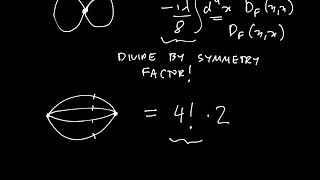 -iλ/8 ∫ d⁴x D_F(x,x) D_F(x,x)
DIVIDE BY SYMMETRY
FACTOR!
= 4! · 2